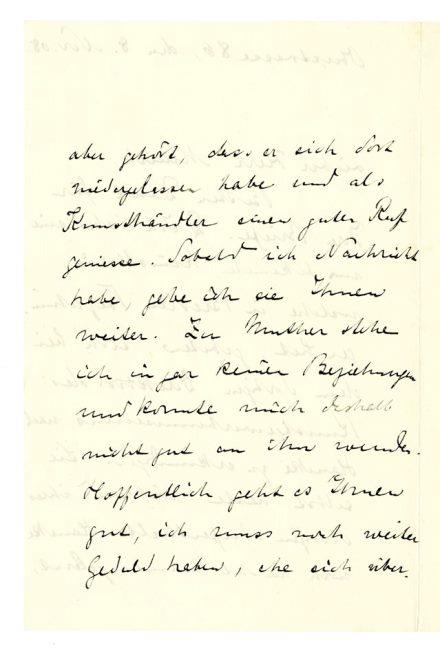 aber gehört, dass er sich dort
niedergelassen habe und als
Kunsthändler einen guten Ruf
geniesse. Sobald ich Nachricht
habe gebe ich sie Ihnen
weiter. Zu Muther stehe
ich in gar keinen Beziehungen
und konnte mich deshalb
nicht gut an ihn wenden.
Hoffentlich geht es Ihnen
gut, ich muss noch weiter
Geduld haben, ehe sich über.